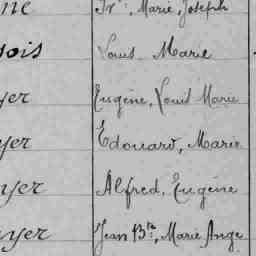 ne Fr. Marie, Joseph
sois Louis Marie
yer Eugène, Louis Marie
yer Édouard, Marie
yer Alfred, Eugène
yer Jean Bte, Marie Ange